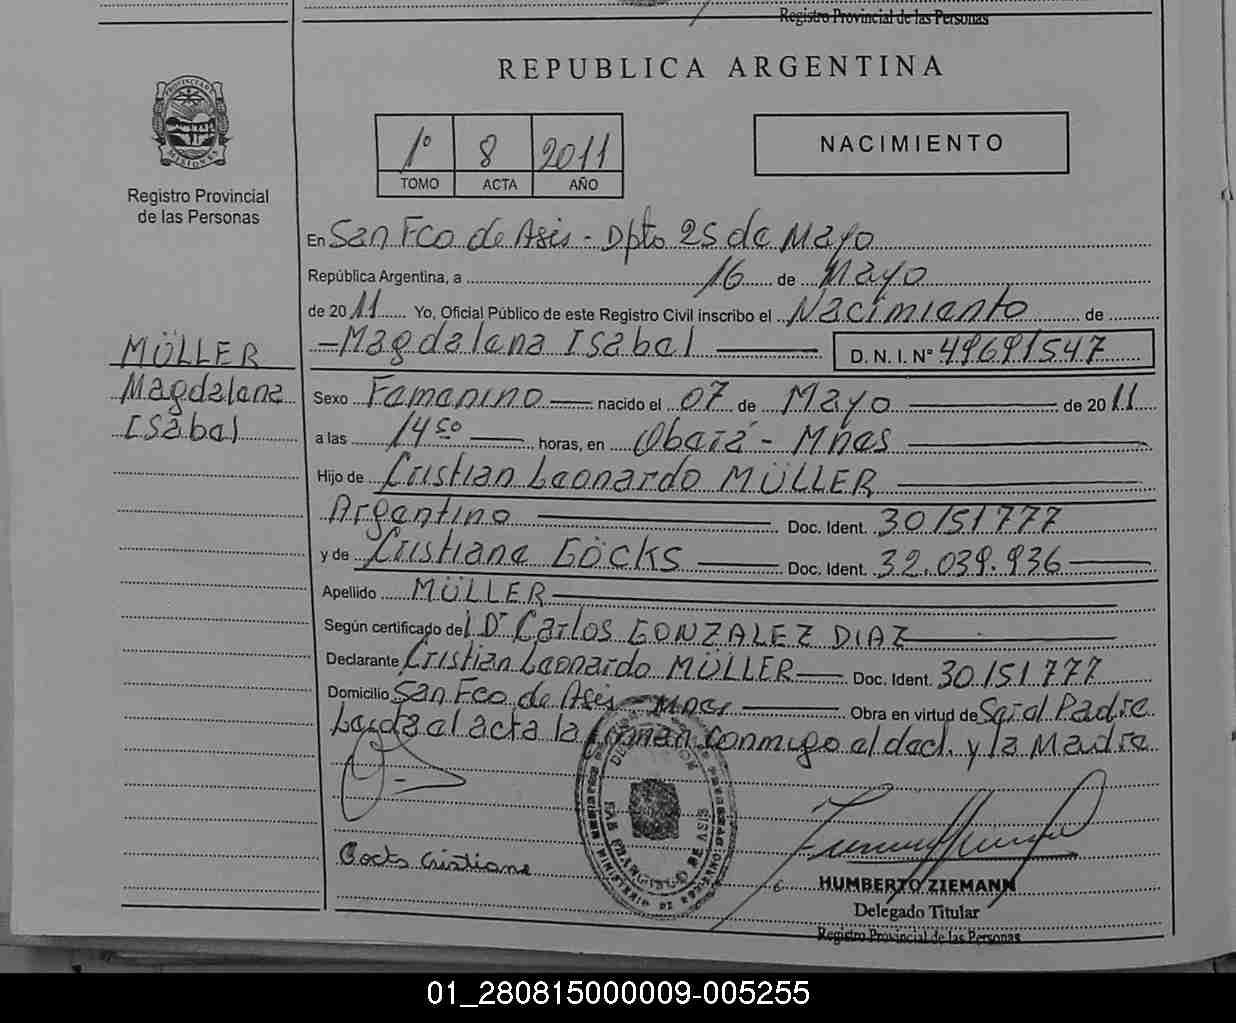 Registro Provincial de las Personas
REPUBLICA ARGENTINA
PROVINCIA DE
MISIONES
Registro Provincial
de las Personas
1º 8 2011
TOMO ACTA AÑO
NACIMIENTO
En San Fco de Asis - Dpto 25 de Mayo
República Argentina, a 16 de Mayo
de 2011 Yo, Oficial Público de este Registro Civil inscribo el Nacimiento de
- Magdalena Isabel D. N. I. Nº 49691547
MÜLLER
Magdalena
Isabel
Sexo Femenino nacido el 07 de Mayo de 2011
a las 14 50 horas, en Oberá - Mnes
Hijo de Cristian Leonardo MÜLLER
Argentino Doc. Ident. 30151777
y de Cristiane GÖCKS Doc. Ident. 32.039.936
Apellido MÜLLER
Según certificado del Dr Carlos GONZALEZ DIAZ
Declarante Cristian Leonardo MÜLLER Doc. Ident. 30151777
Domicilio San Fco de Asis - Mnes Obra en virtud de Ser el Padre
Leida el acta la firman conmigo el decl. y la Madre
SAN FRANCISCO DE ASIS
MINISTERIO DE GOBIERNO
Gocks Cristiane
HUMBERTO ZIEMANN
Delegado Titular
Registro Provincial de las Personas
01_280815000009-005255